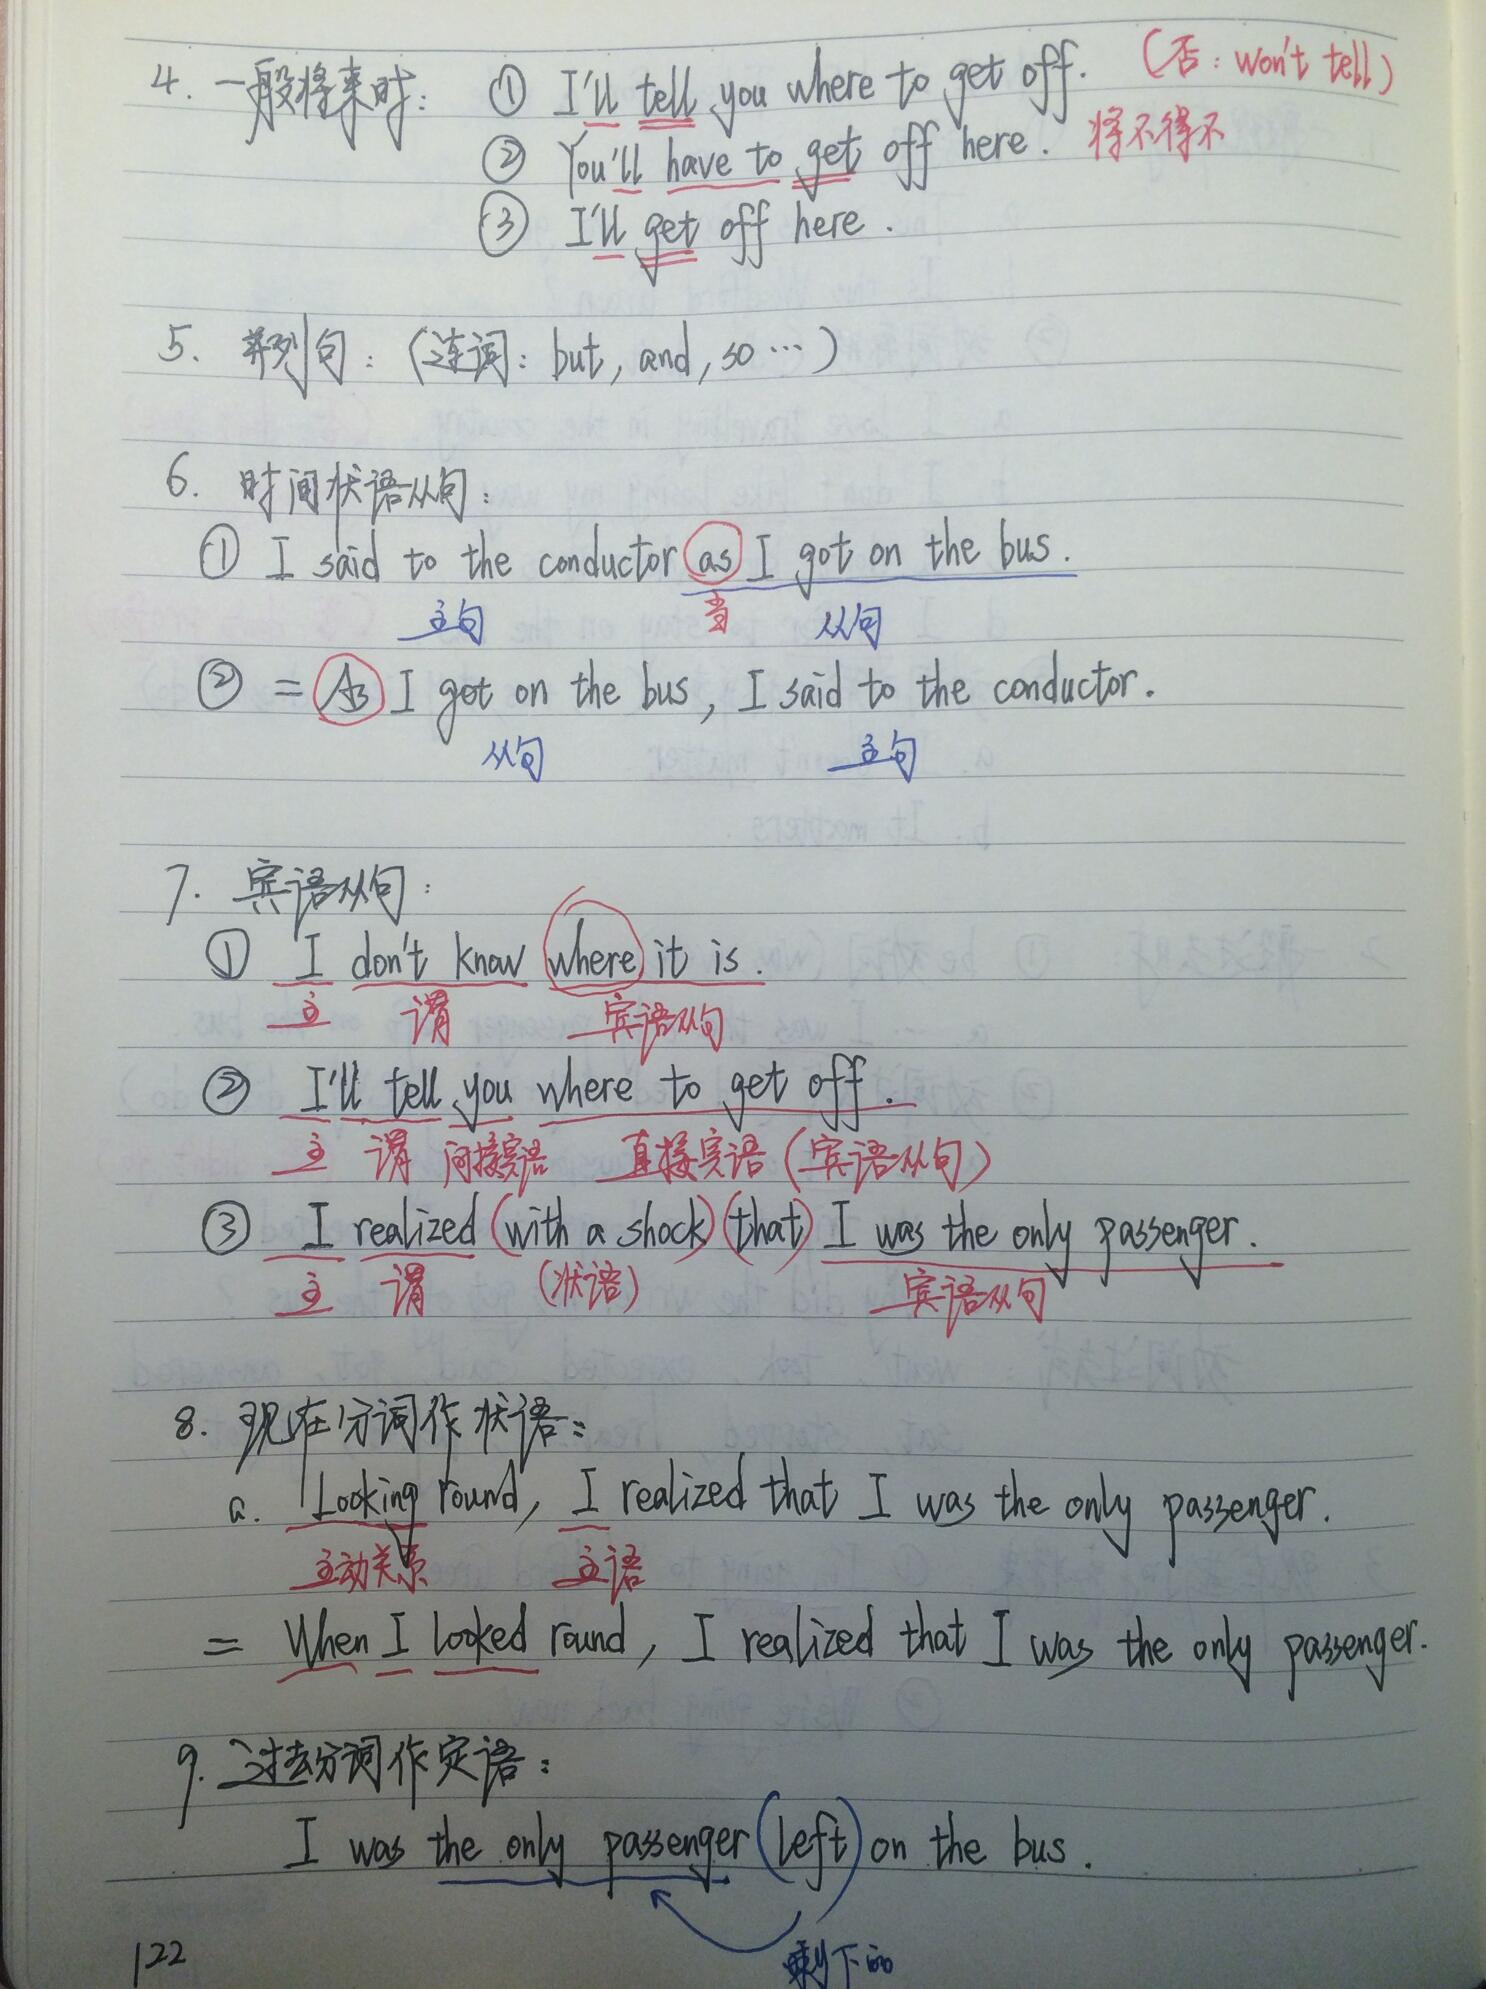 4. 一般将来时: ① I'll tell you where to get off. (否: won't tell)
② You'll have to get off here. 将不得不
③ I'll get off here.
5. 并列句: (连词: but, and, so ...)
6. 时间状语从句:
① I said to the conductor as I got on the bus.
主句 当 从句
② = As I got on the bus, I said to the conductor.
从句 主句
7. 宾语从句:
① I don't know where it is.
主 谓 宾语从句
② I'll tell you where to get off.
主 谓 间接宾语 直接宾语 (宾语从句)
③ I realized (with a shock) (that) I was the only passenger.
主 谓 (状语) 宾语从句
8. 现在分词作状语:
a. Looking round, I realized that I was the only passenger.
主动关系 主语
= When I looked round, I realized that I was the only passenger.
9. 过去分词作定语:
I was the only passenger (left) on the bus.
剩下的
122